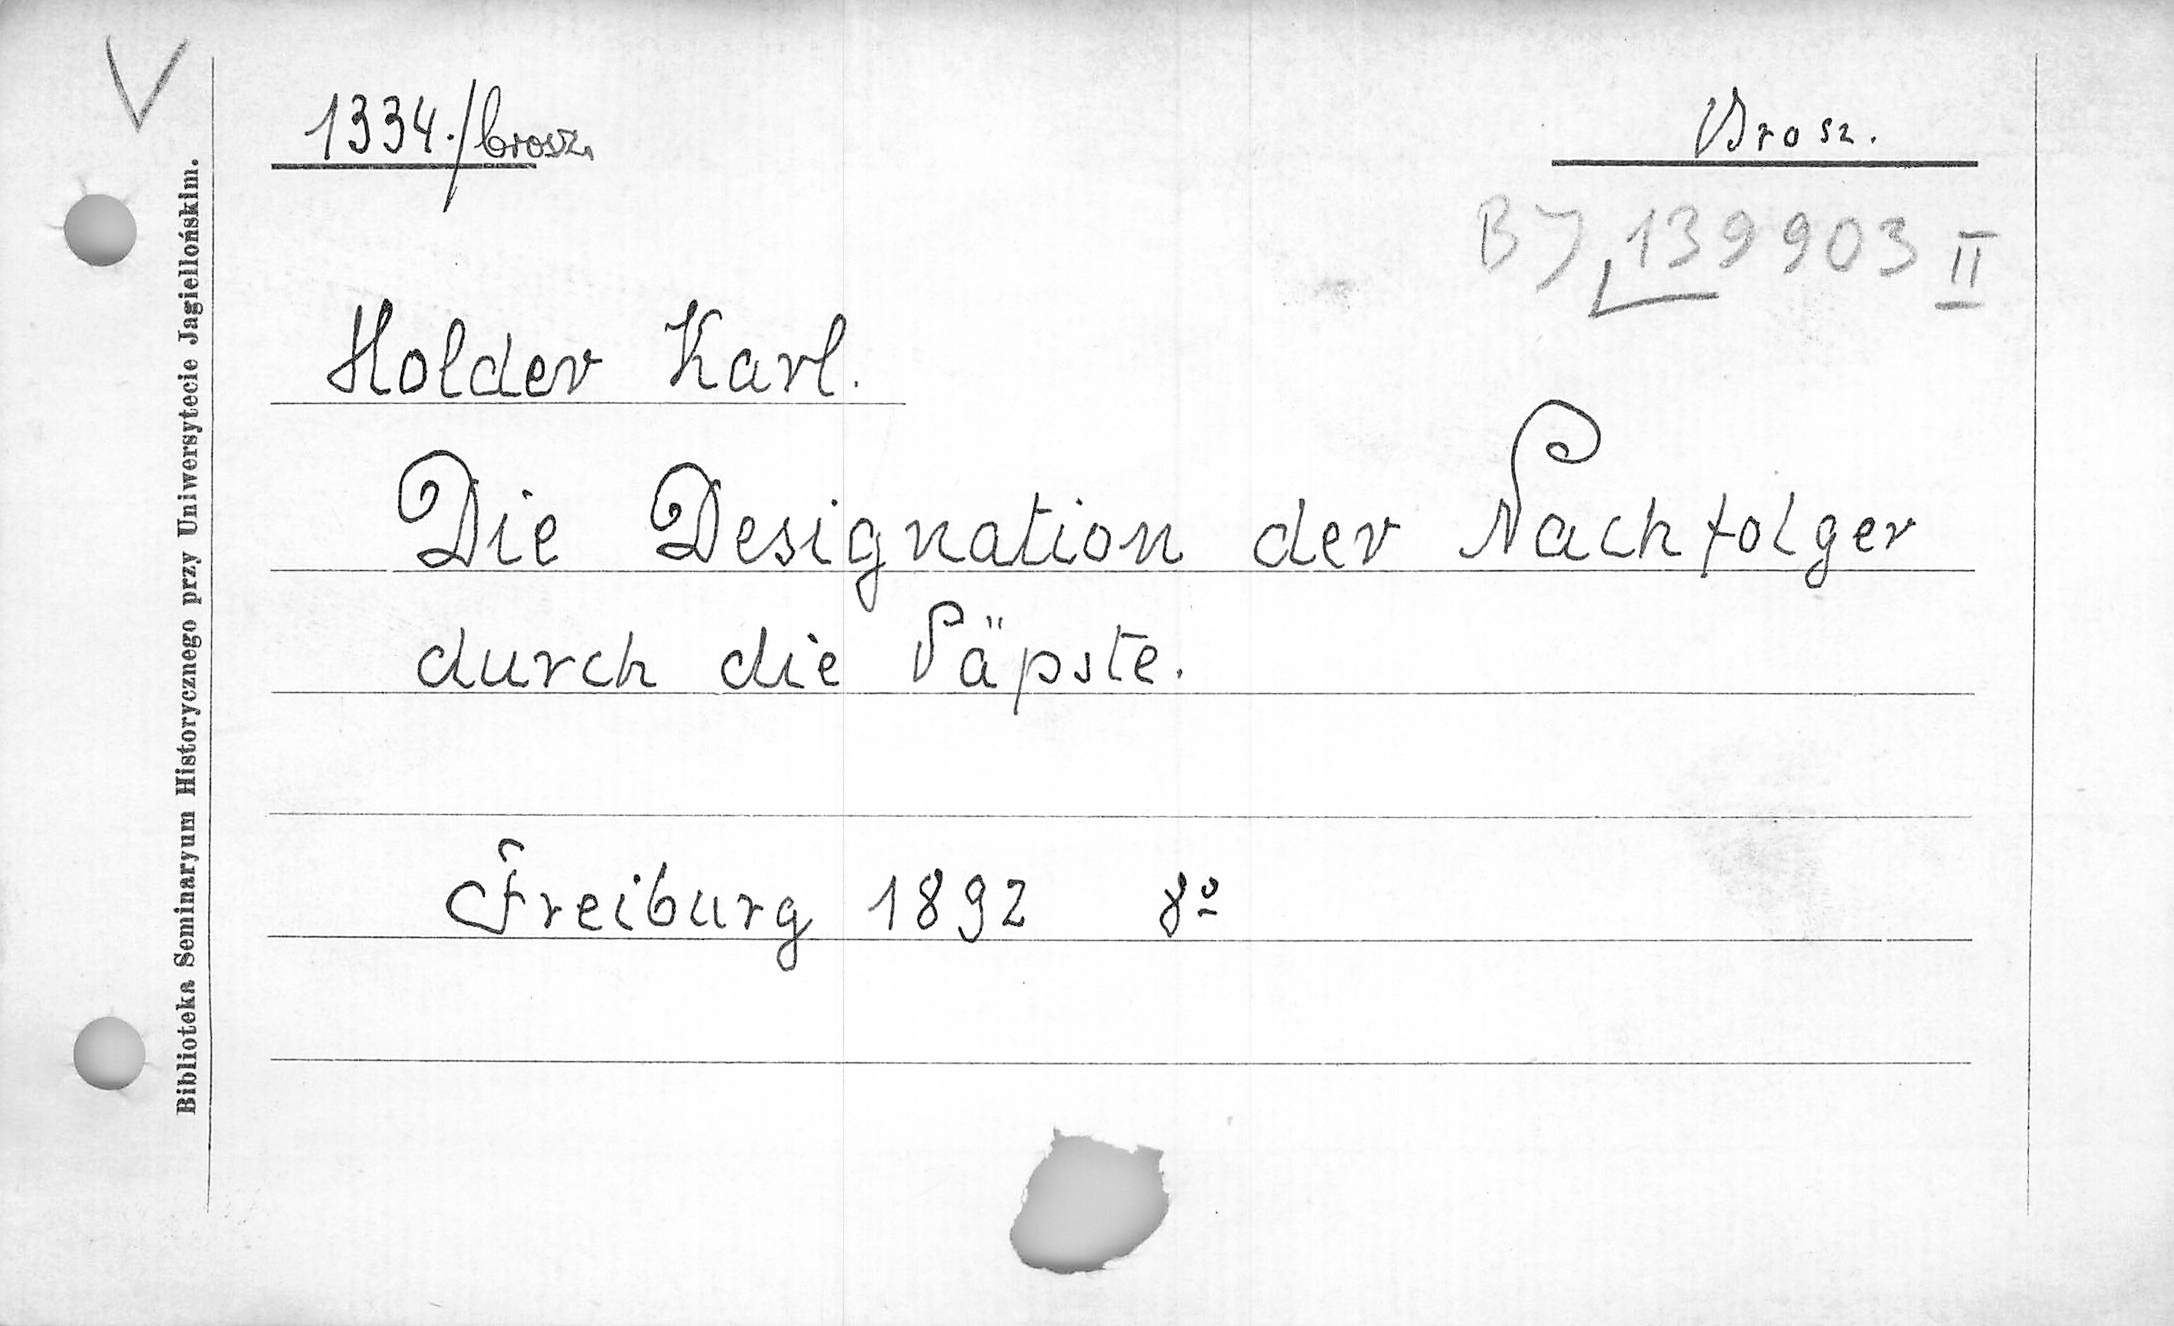 V
1334./brosz.
Brosz.
BJ 139903 II
Holder Karl.
Die Designation der Nachfolger
durch die Päpste.
Freiburg 1892 8º
Biblioteka Seminaryum Historycznego przy Uniwersytecie Jagiellońskim.